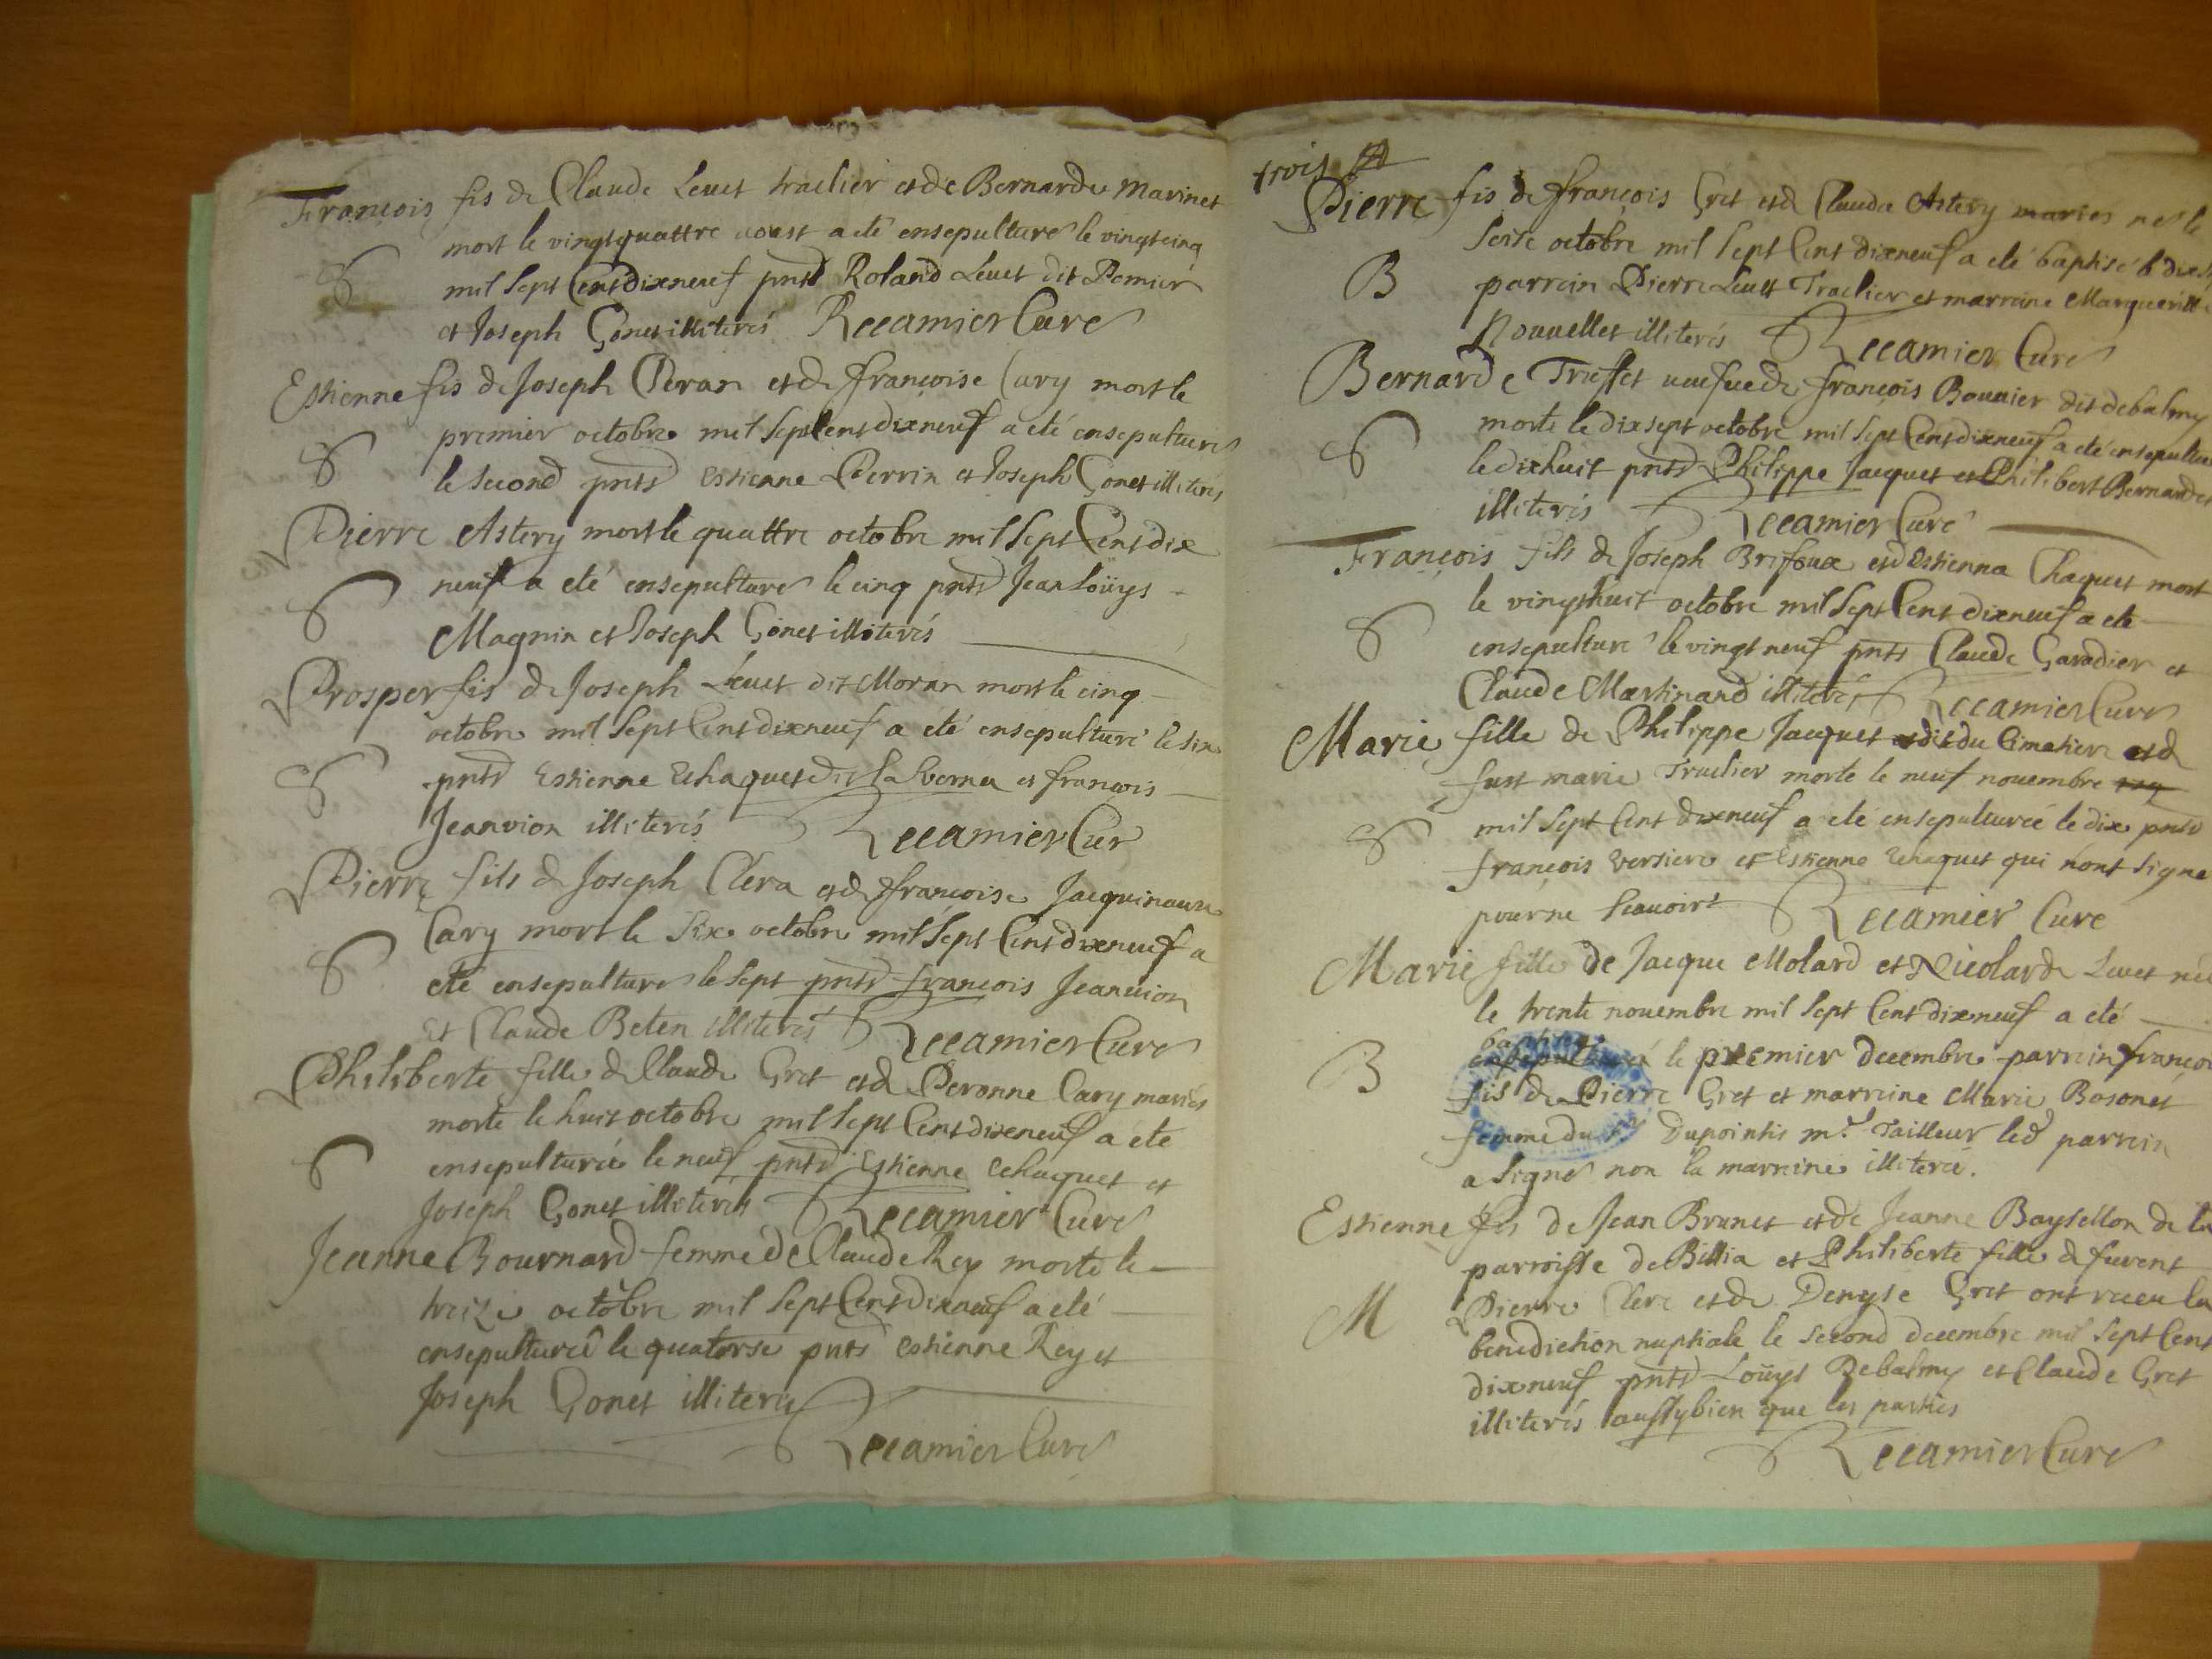 François fis de Claude Levet traclier et de Bernarde Marinet
mort le vingtquattre aoust a eté ensepulturé le vingtcinq
S mil sept Cent dixneuf pnts Roland Levet dit Pemier
et Joseph Gonet illiterés Recamier Curé
Estienne fis de Joseph Peran et de françoise Cary mort le
premier octobre mil sept Cent dixneuf a eté ensepulturé
S le second pnts Estienne Perrin et Joseph Gonet illiterés
Pierre Astery mort le quattre octobre mil sept Cent dix
neuf a eté ensepulturé le cinq pnts Jean Loüys
S Magnin et Joseph Gonet illiterés
Prosper fis de Joseph Levet dit Moran mort le cinq
octobre mil sept Cent dixneuf a eté ensepulturé le six
S pnts Estienne Echaquet dit la Verna et françois
Jeanvion illiterés Recamier Cur
Pierre fils de Joseph Clera et de françoise Jacquinaur
Cary mort le six octobre mil sept Cent dixneuf a
S eté ensepulturé le sept pnts françois Jeanvion
et Claude Beten illiterés Recamier Curé
Philiberte fille de Claude Gret et de Peronne Cary mariés
morte le huit octobre mil sept Cent dixneuf a eté
S ensepulturée le neuf pnts Estienne Echaquet et
Joseph Gonet illiterés Recamier Curé
Jeanne Bournard femme de Claude Rey morte le
treize octobre mil sept Cent dixneuf a eté
ensepulturée le quatorse pnts estienne Rey et
Joseph Gonet illiterés
Recamier Curé
trois
Pierre fis de françois Gret et de Claude Astery mariés né le
seise octobre mil sept Cent dixneuf a eté baptisé le
B parrein Pierre Levet Traclier et marreine Margueritte
Nouvellet illiterés Recamier Curé
Bernarde Trieffet veufue de françois Bouvier dit debalmy
morte le dixsept octobre mil sept Cent dixneuf a eté ensepulturé
S le dixhuit pnts Philippe Jacquet et Philibert Bernardet
illiterés Recamier Curé
François fils de Joseph Brifoux et d Estienna Chaquet mort
le vingthuit octobre mil sept Cent dixneuf a eté
S ensepulturé le vingt neuf pnts Claude Garadier et
Claude Martinand illiterés Recamier Curé
Marie fille de Philippe Jacquet dit du Cimetiere et d
fust marie Traclier morte le neuf novembre
S mil sept Cent dixneuf a eté ensepulturée le dix pnts
françois Versiere et Estienne Echaquet qui nont signé
pour ne scavoir Recamier Curé
Marie fille de Jacque Molard et Nicolarde Levet née
le trente novembre mil sept Cent dixneuf a eté
baptisée
B ensepulturé le premier decembre parrein françois
fis de Pierre Gret et marreine Marie Bosonet
femme du Sr Dupointis mr Tailleur led parrein
a signé non la marreine illiterée.
Estienne fis de Jean Brunet et de Jeanne Baysellon de la
parroisse de Billia et Philiberte fille de furent
M Pierre Clere et de Denyse Gret ont receu la
benediction nuptiale le second decembre mil sept Cent
dixneuf pnts Loüys Debalmy et Claude Gret
illiterés aussybien que les parties
Recamier Curé